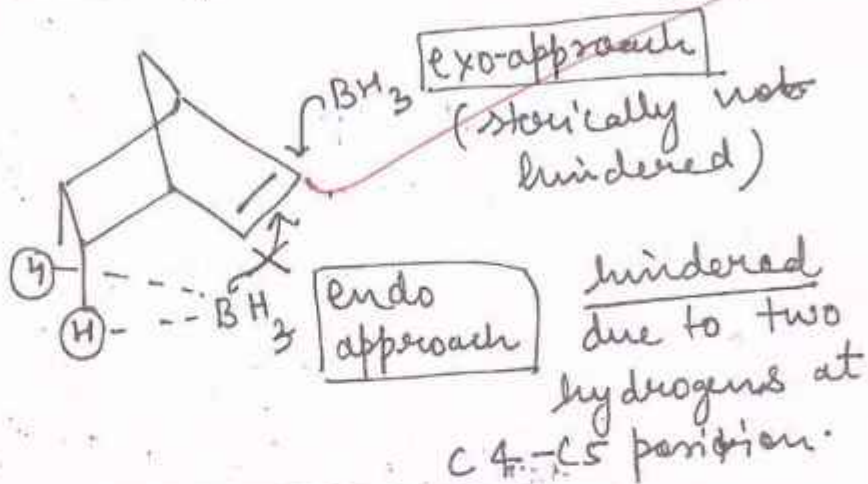 BH3 exo-approach
(sterically not
hindered)
H
H
BH3
endo
approach
hindered
due to two
hydrogens at
C4-C5 position.